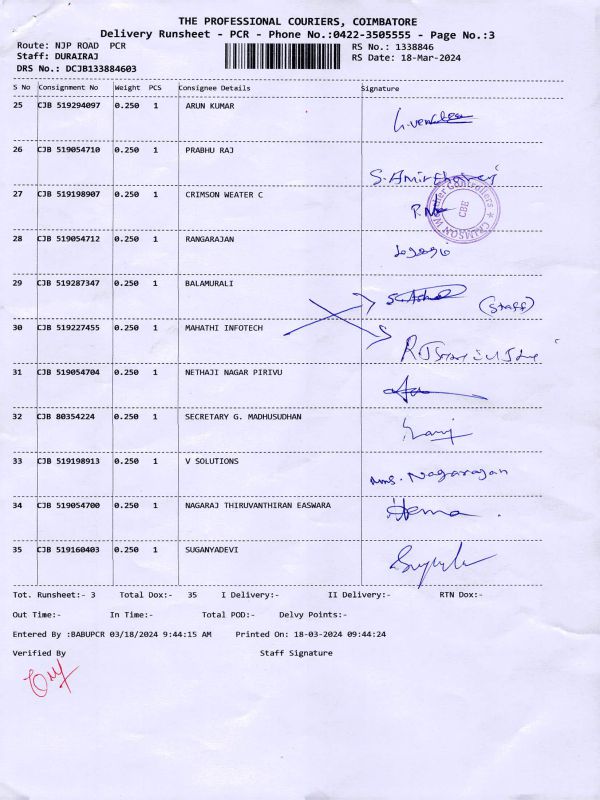 THE PROFESSIONAL COURIERS, COIMBATORE
Delivery Runsheet - PCR - Phone No.:0422-3505555 - Page No.:3
Route: NJP ROAD PCR RS No.: 1338846
Staff: DURAIRAJ RS Date: 18-Mar-2024
DRS No.: DCJB133884603
S No Consignment No Weight PCS Consignee Details Signature
25 CJB 519294097 0.250 1 ARUN KUMAR
26 CJB 519054710 0.250 1 PRABHU RAJ
27 CJB 519198907 0.250 1 CRIMSON WEATER C
CRIMSON CBE
28 CJB 519054712 0.250 1 RANGARAJAN
29 CJB 519287347 0.250 1 BALAMURALI (Staff)
30 CJB 519227455 0.250 1 MAHATHI INFOTECH
31 CJB 519054704 0.250 1 NETHAJI NAGAR PIRIVU
32 CJB 80354224 0.250 1 SECRETARY G. MADHUSUDHAN
33 CJB 519198913 0.250 1 V SOLUTIONS Nagarajan
34 CJB 519054700 0.250 1 NAGARAJ THIRUVANTHIRAN EASWARA Hema
35 CJB 519160403 0.250 1 SUGANYADEVI
Tot. Runsheet:- 3 Total Dox:- 35 I Delivery:- II Delivery:- RTN Dox:-
Out Time:- In Time:- Total POD:- Delvy Points:-
Entered By :BABUPCR 03/18/2024 9:44:15 AM Printed On: 18-03-2024 09:44:24
Verified By Staff Signature